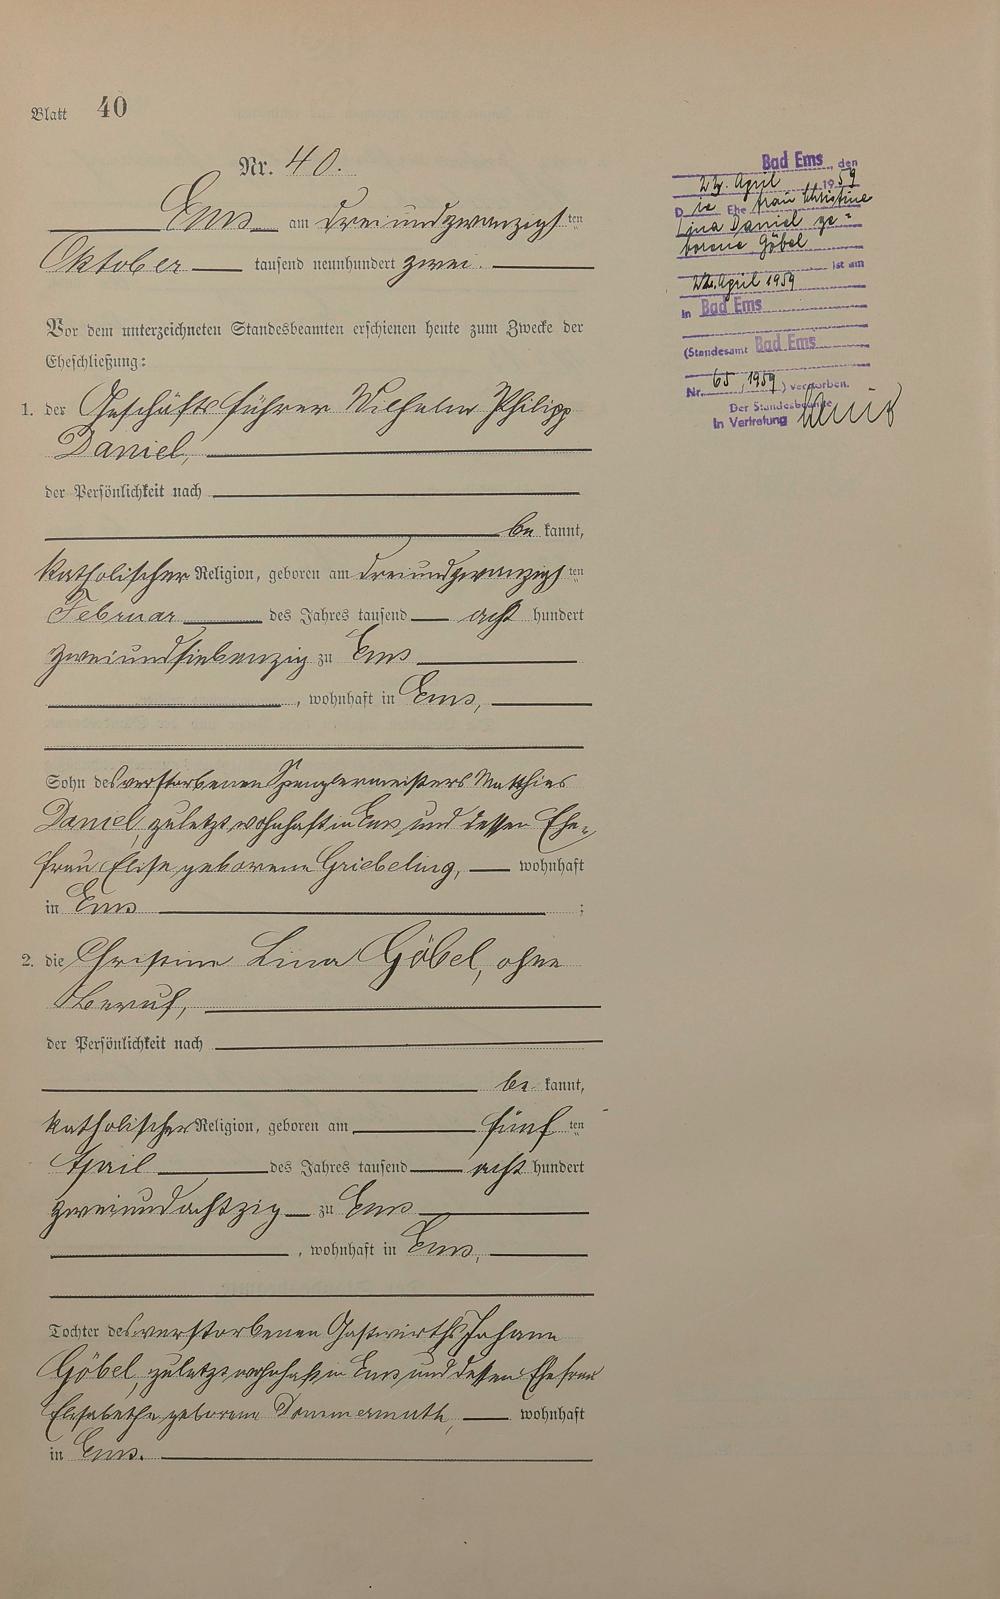 Blatt 40
Nr. 40.
Ems am dreiundzwanzigsten
Oktober tausend neunhundert zwei.
Vor dem unterzeichneten Standesbeamten erschienen heute zum Zwecke der
Eheschließung:
1. der Geschäftsführer Wilhelm Philipp
Daniel,
der Persönlichkeit nach
be kannt,
katholischer Religion, geboren am dreiundzwanzigsten
Februar des Jahres tausend acht hundert
zweiundsiebenzig zu Ems
, wohnhaft in Ems,
Sohn des verstorbenen Spenglermeisters Matthies
Daniel, zuletzt wohnhaft in Ems und dessen Ehe=
frau Elise geborene Griebeling, wohnhaft
in Ems ;
2. die Christine Lina Göbel, ohne
Beruf,
der Persönlichkeit nach
be kannt,
katholischer Religion, geboren am fünf ten
April des Jahres tausend acht hundert
zweiundachtzig zu Ems
, wohnhaft in Ems,
Tochter des verstorbenen Gastwirths Johann
Göbel, zuletzt wohnhaft in Ems und dessen Ehefrau
Elisabethe geborene Dommermuth, wohnhaft
in Ems.
Bad Ems, den
April 1959
Die Ehefrau Christine
Lina Daniel ge=
borene Göbel
ist am
22. April 1959
in Bad Ems
(Standesamt Bad Ems
Nr. 65, 1959) verstorben.
Der Standesbeamte
In Vertretung